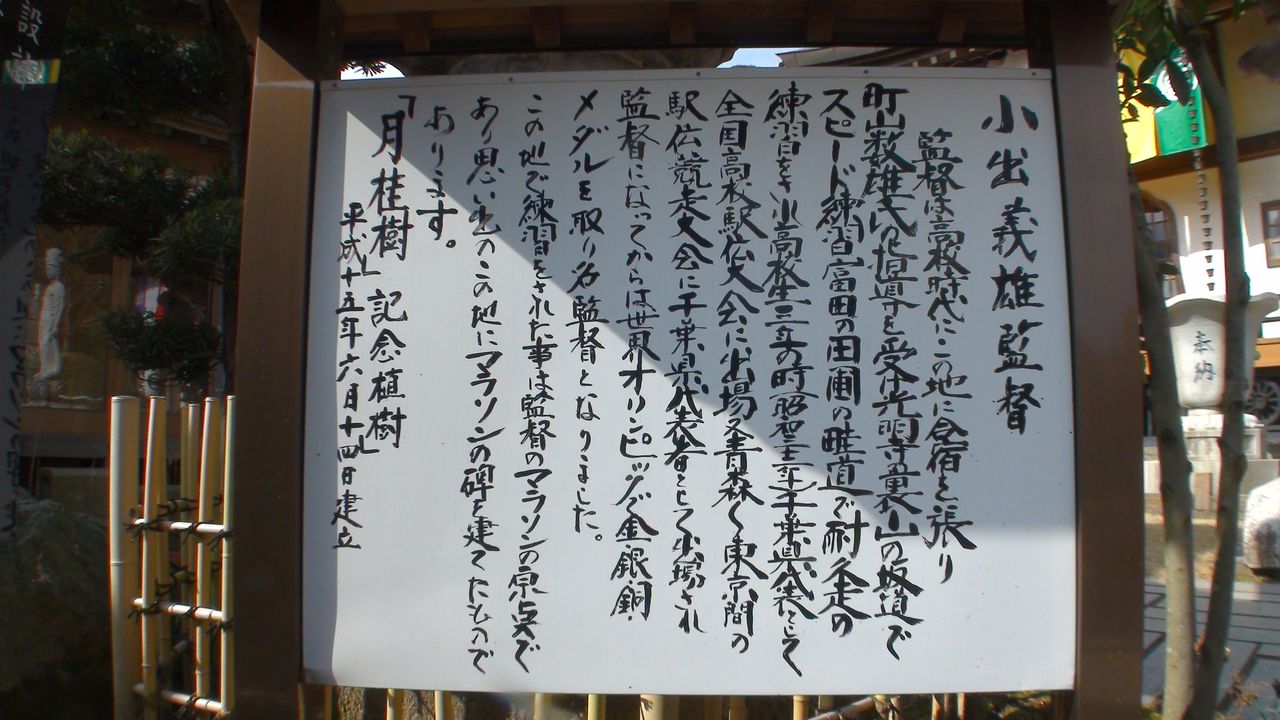 小出義雄監督
監督は高校時代にこの地に合宿を張り
町山数雄氏の指導を受け光明寺裏山の坂道で
スピード練習富田の田圃の畦道で耐久走の
練習をされ高校生三年の時昭和三十二年千葉県代表として
全国高校駅伝大会に出場又青森〜東京間の
駅伝競走大会に千葉県代表者として出場され
監督になってからは世界オリンピックで金銀銅
メダルを取り名監督となりました。
この地で練習をされた事は監督のマラソンの原点で
あり思い出のこの地にマラソンの碑を建てたもので
あります。
「月桂樹」記念植樹」
平成十五年六月十四日建立
奉納